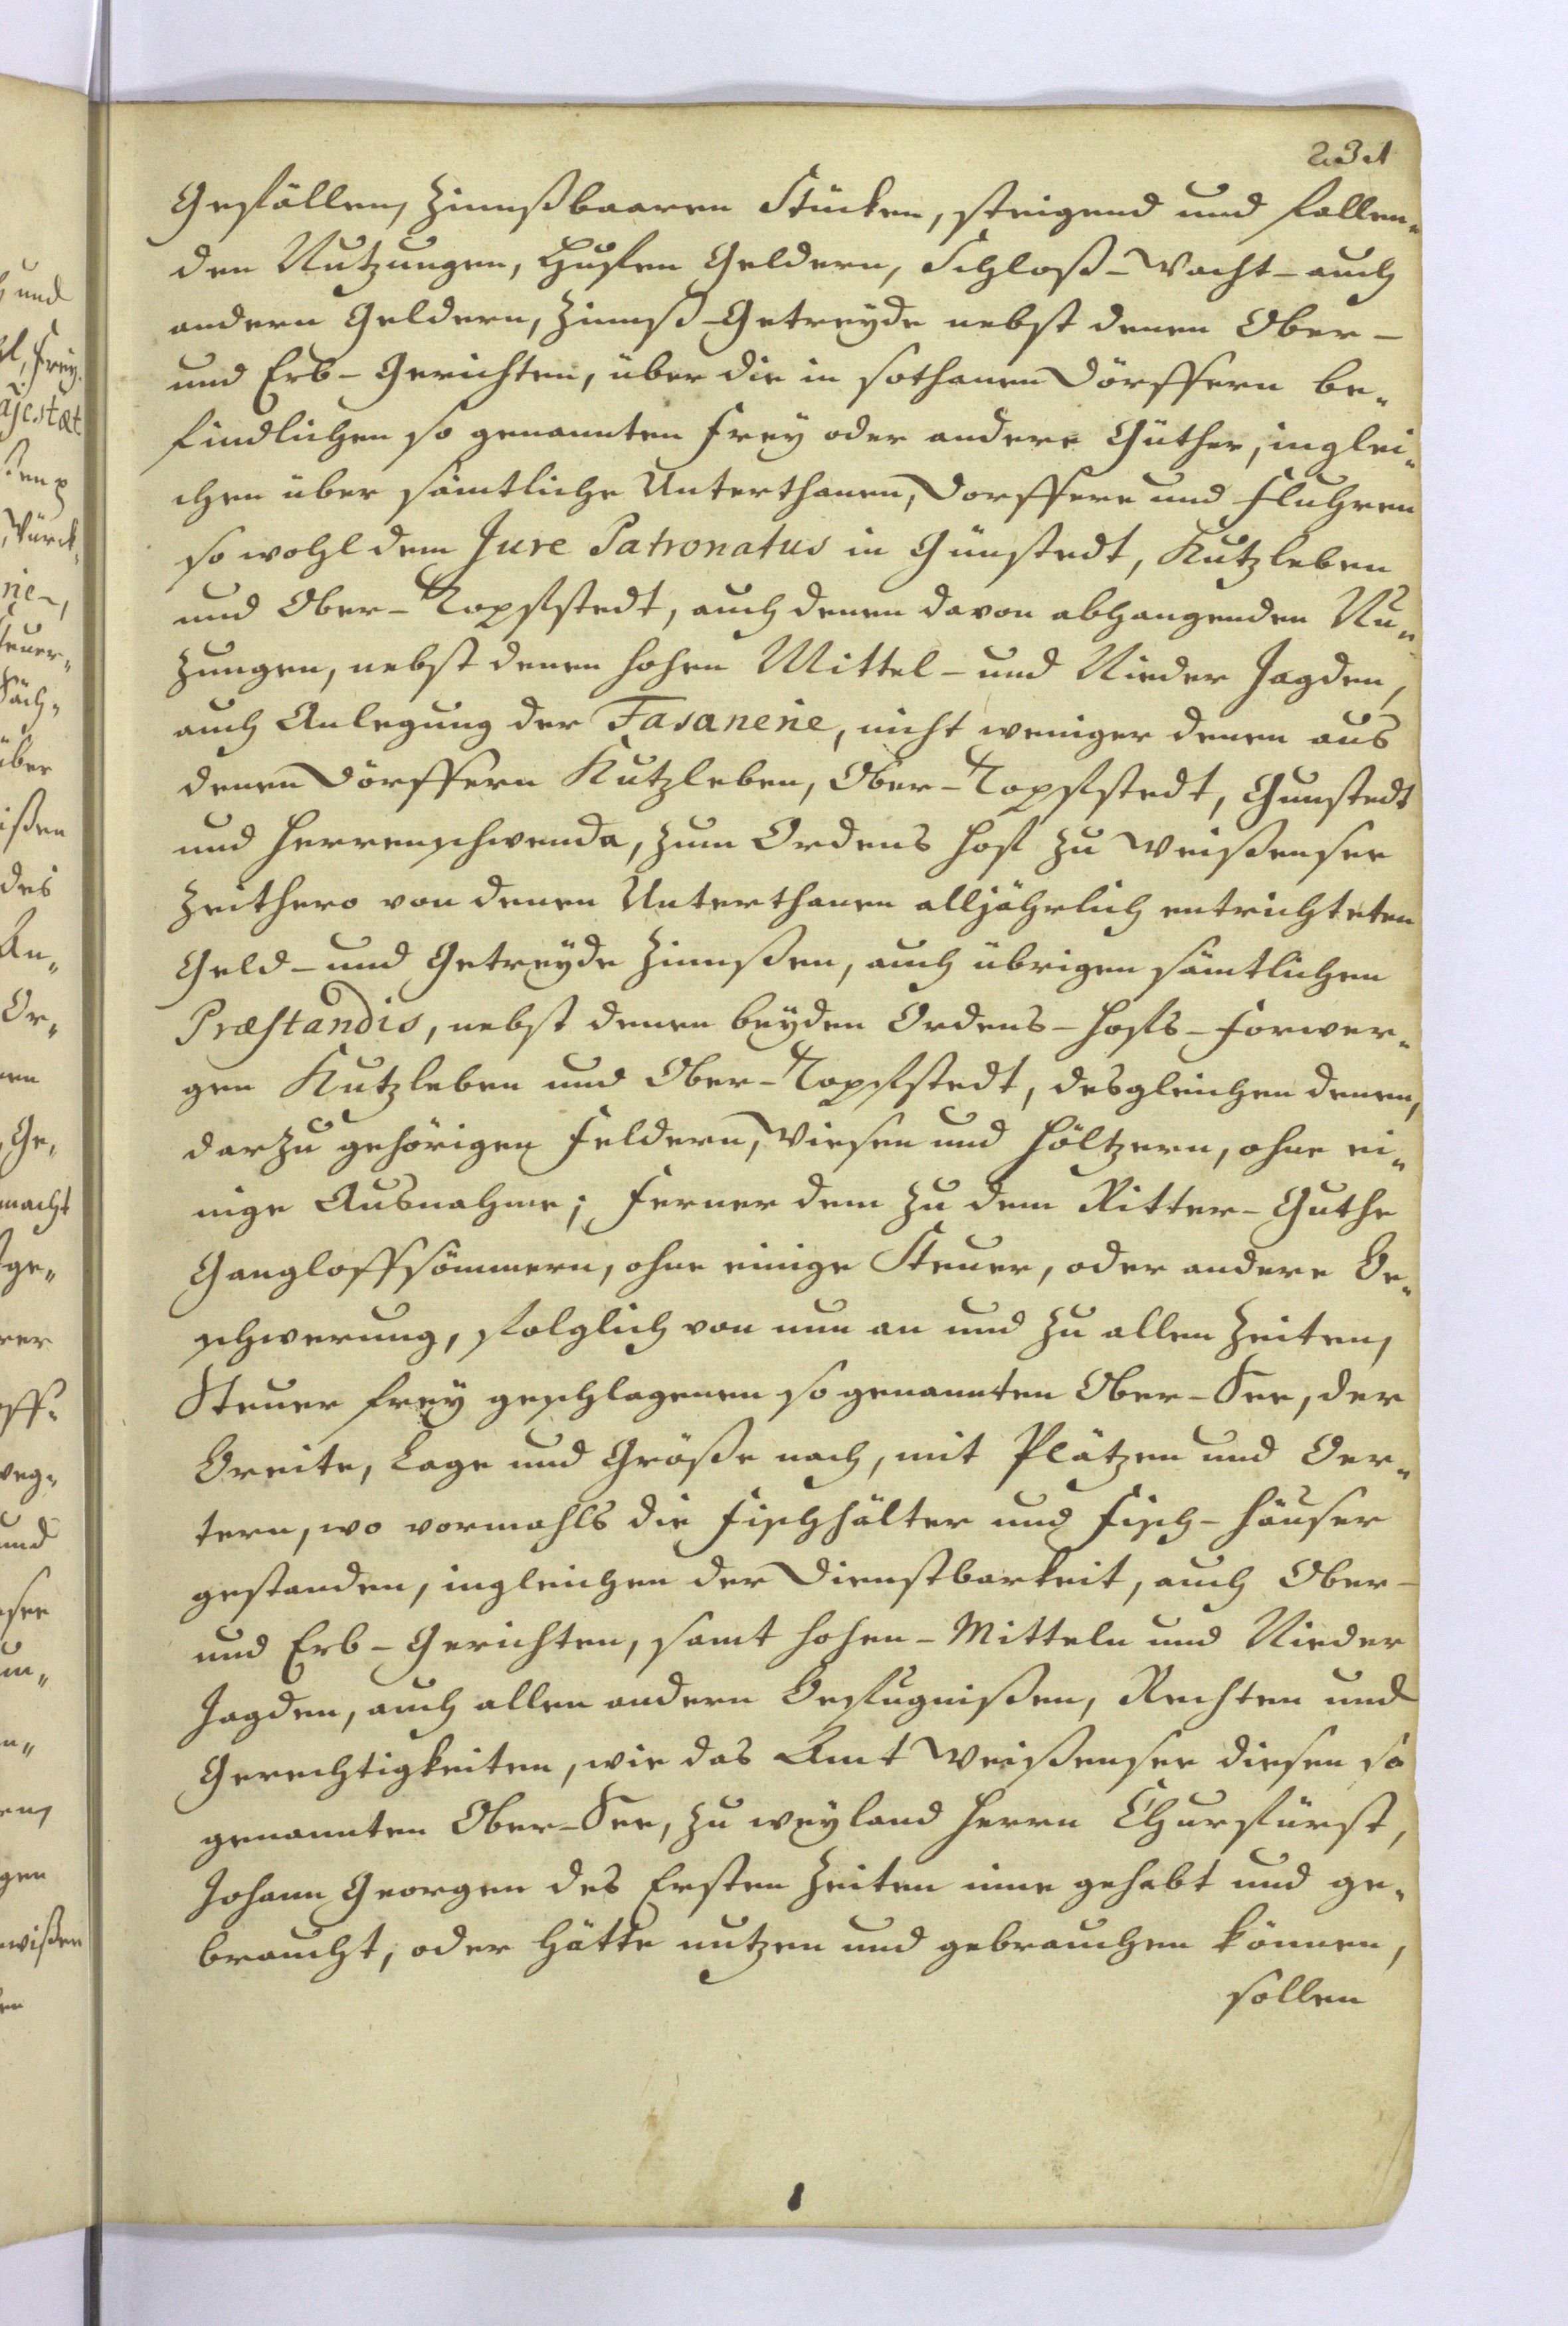 231
Gefällen, Zinnßbaaren Stücken, steigend und fallen-
den Nutzungen, Hufen Geldern, Schloß-Wacht-auch
andern Geldern, Zinnß-Getreyde nebst denen Ober-
und Erb-Gerichten, über die in sothanen Dörffern be-
findlichen so genannten Frey oder andere Güther, inglei-
chen über sämtliche Unterthanen, Dorffere und Fluhren
so wohl dem Jure Patronatus in Günstedt, Kutzleben
und Ober-Topfstedt, auch denen davon abhangenden Nu-
zungen, nebst denen hohen Mittel- und Nieder Jagden,
auch Anlegung der Fasanerie, nicht weniger denen aus
denen Dörffern Kutzleben, Ober-Topfstedt, Gunstedt
und Herrenschwenda, zum Ordens Hof zu Weißensee
zeithero von denen Unterthanen alljährlich entrichteten
Geld- und Getreyde Zinnßen, auch übrigen sämtlichen
Præstandis, nebst denen beyden Ordens-Hofs-Forwer-
gen Kutzleben und Ober-Topfstedt, desgleichen denen,
darzu gehörigen Feldern, Wiesen und Höltzern, ohne ei-
nige Ausnahme; Ferner dem zu dem Ritter-Guthe
Gangloffsömmern, ohne einige Steuer, oder andere Be-
schwerung, folglich von nun an und zu allen Zeiten,
Steuer frey geschlagenen so genannten Ober-See, der
Breite, Lage und Größe nach, mit Plätzen und Oer-
tern, wo vormahls die Fischhälter und Fisch-Häuser
gestanden, ingleichen der Dienstbarkeit, auch Ober-
und Erb-Gerichten, samt hohen-Mitteln und Nieder
Jagden, auch allen andern Befugnißen, Rechten und
Gerechtigkeiten, wie das Amt Weißensee diesen so
genannten Ober-See, zu weyland Herrn Churfürst,
Johann Georgen des Ersten Zeiten inne gehabt und ge-
braucht, oder hätte nutzen und gebrauchen können,
sollen